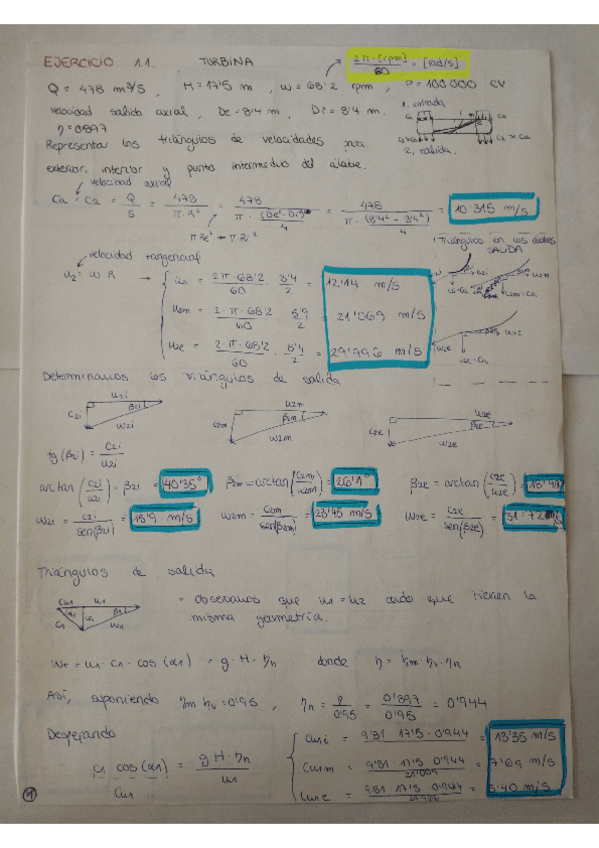 EJERCICIO 1.1. TURBINA 2π·[rpm]/60 = [rad/s]
Q = 478 m³/s , H = 17'5 m , ω = 68'2 rpm , P = 100 000 CV
velocidad salida axial , De = 8'4 m , Di = 3'4 m.
η = 0'897
1. entrada
Representar los triángulos de velocidades para
2. salida.
exterior, interior y punto intermedio del álabe.
velocidad axial
Ca = C2 = Q/S = 478/(π·R²) = 478/(π·(De²-Di²)/4) = 478/(π·(8'4²-3'4²)/4) = 10'315 m/s
πRe² + πRi²
Triángulos en los álabes
SALIDA
velocidad tangencial
u2 = ω R → ui = 2π·68'2/60 · 3'4/2 = 12'14 m/s
um = 2·π·68'2/60 · 5'9/2 = 21'069 m/s
u2e = 2·π·68'2/60 · 8'4/2 = 29'996 m/s
Determinamos los triángulos de salida
u2i β2i C2i w2i
u2m β2m C2m w2m
u2e β2e C2e w2e
tg(β2i) = C2i/u2i
arctan(C2i/u2i) = β2i = 40'35° β2m = arctan(C2m/u2m) = 26'1° β2e = arctan(C2e/u2e) =
w2i = C2i/sen(β2i) = 15'9 m/s w2m = C2m/sen(β2m) = 23'45 m/s w2e = C2e/sen(β2e) = 31'72 m/s
Triángulos de salida
Cu1 u1 α1 β1 C1 w1
= observamos que u1 = u2 dado que tienen la
misma geometría.
Wt = u1·C1·cos(α1) = g·H·ηn donde η = ηm·ηv·ηn
Así, suponiendo ηm ηv = 0'95, ηn = η/0'95 = 0'897/0'95 = 0'944
Despejando
C1 cos(α1) = g H·ηn/u1
Cu1
Cu1i = 9'81·17'5·0'944 = 13'35 m/s
Cu1m = 9'81·17'5·0'944/21'069 = 7'69 m/s
Cu1e = 9'81·17'5·0'944/29'996 = 5'40 m/s
1